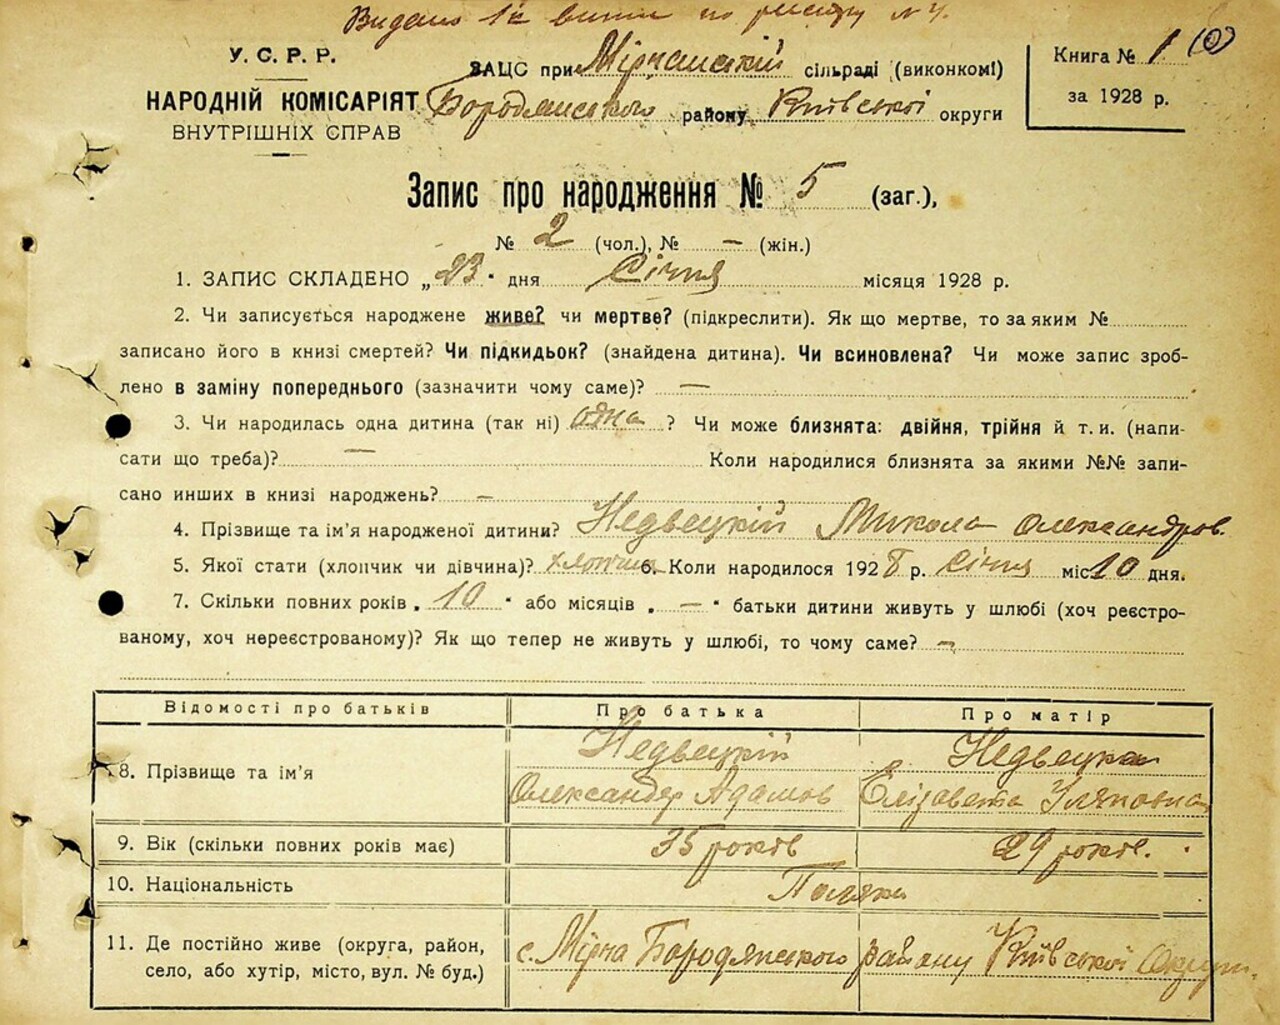 Видано
У. С. Р. Р.
НАРОДНІЙ КОМІСАРІЯТ
ВНУТРІШНІХ СПРАВ
ЗАЦС при Мірчанській сільраді (виконкомі)
Бородянського району Київської округи
Книга № 1
за 1928 р.
Запис про народження № 5 (заг.),
№ 2 (чол.), № — (жін.)
1. ЗАПИС СКЛАДЕНО „23" дня Січня місяця 1928 р.
2. Чи записується народжене живе? чи мертве? (підкреслити). Як що мертве, то за яким №
записано його в книзі смертей? Чи підкидьок? (знайдена дитина). Чи всиновлена? Чи може запис зроб-
лено в заміну попереднього (зазначити чому саме)? —
3. Чи народилась одна дитина (так ні) одна ? Чи може близнята: двійня, трійня й т. и. (напи-
сати що треба)? — Коли народилися близнята за якими №№ запи-
сано инших в книзі народжень? —
4. Прізвище та ім'я народженої дитини? Недвецкій Микола Олександров.
5. Якої стати (хлопчик чи дівчина)? хлопчик 6. Коли народилося 1928 р. Січня міс 10 дня.
7. Скільки повних років „10" або місяців „—" батьки дитини живуть у шлюбі (хоч реєстро-
ваному, хоч нереєстрованому)? Як що тепер не живуть у шлюбі, то чому саме? —
Відомості про батьків Про батька Про матір
8. Прізвище та ім'я Недвецкій Недвецка
Олександер Адамов Єлізовета
9. Вік (скільки повних років має) 35 років 29 років.
10. Національність Поляки
11. Де постійно живе (округа, район,
село, або хутір, місто, вул. № буд.) с. Мірча Бородянського району Київської Округи.